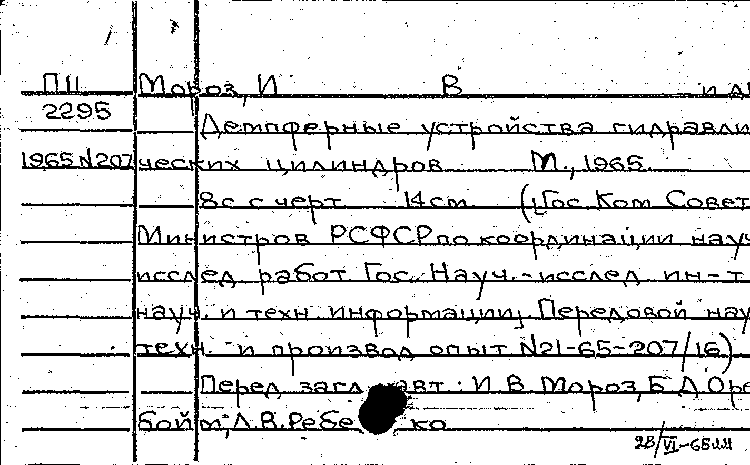 П11
2295
1965 N207
Мороз, И В и др
Демпферные устройства гидравли
ческих цилиндров М., 1965.
8с с черт 14см (Гос. Ком Совет
Министров РСФСР по координации науч
исслед работ Гос. Науч.-исслед ин-т
науч. и техн. информации. Передовой науч
техн. и производ опыт N21-65-207/16)
Перед загл авт: И. В. Мороз, Б. Л. Оре
бойм, Л. В. Ребе ко
28/VI-65